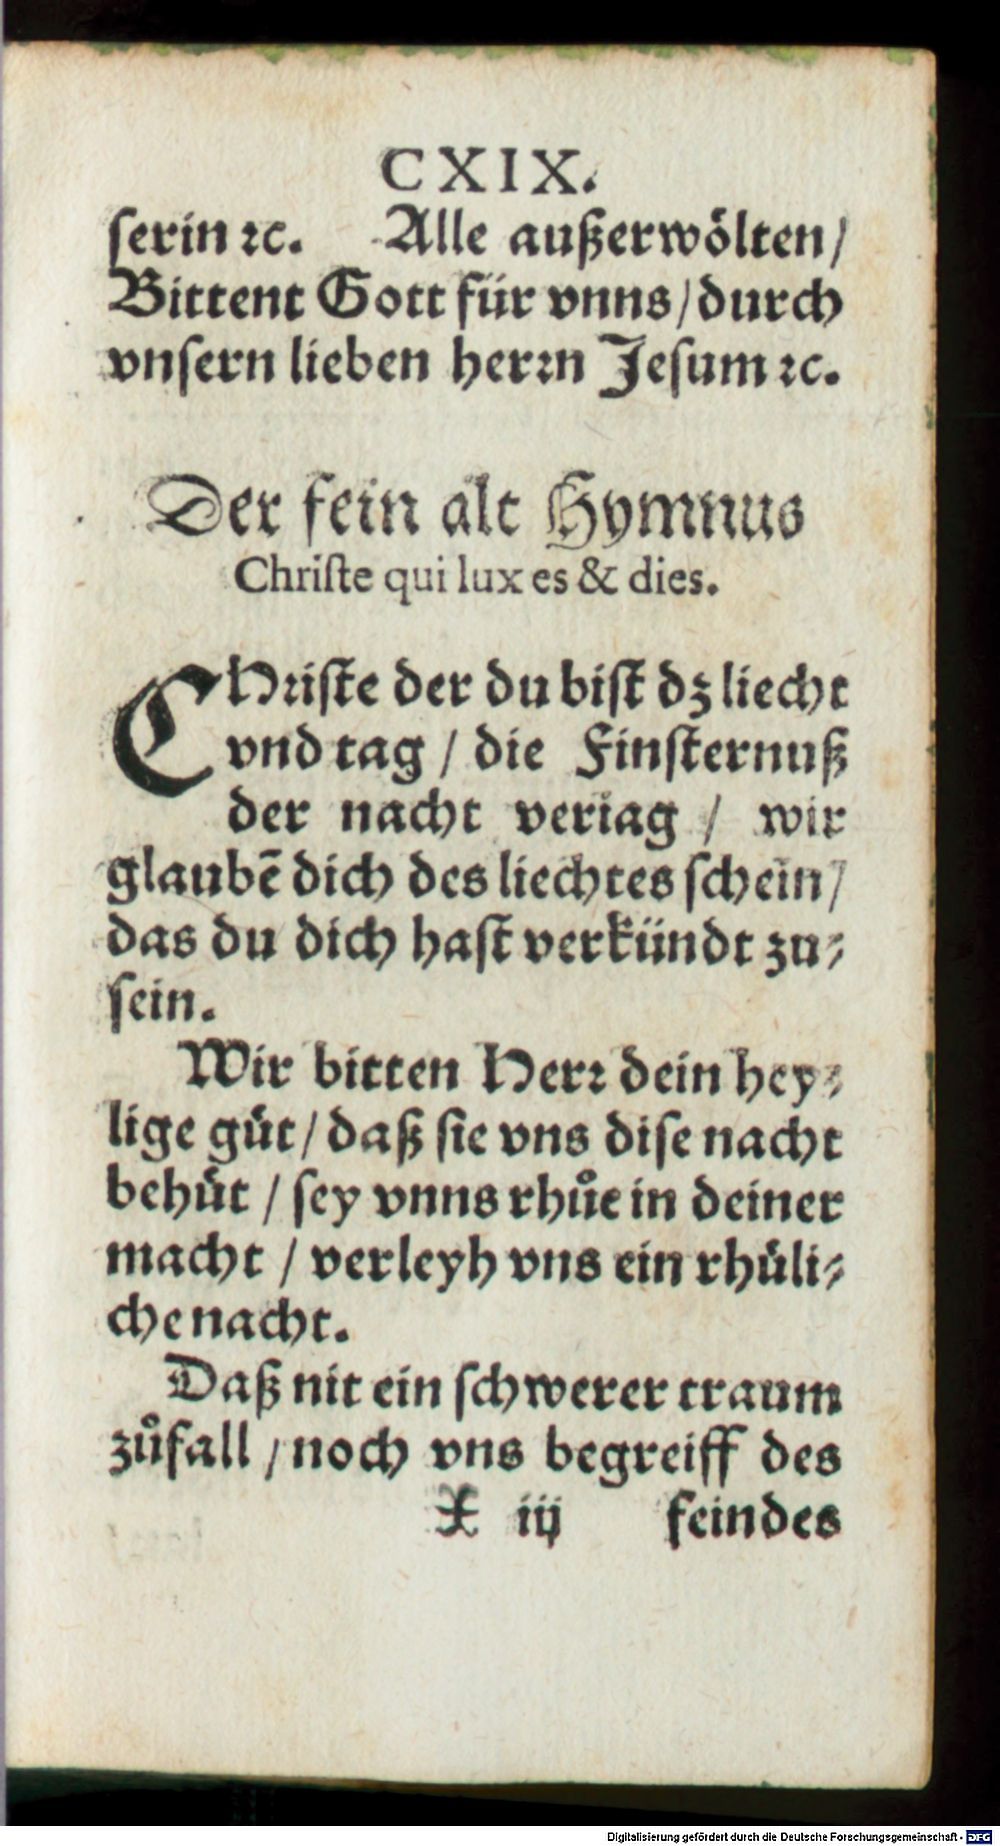 CXIX.
ſerin ꝛc. Alle außerwoͤlten/
Bittent Gott fuͤr vnns/durch
vnſern lieben herꝛn Jeſum ꝛc.
Der fein alt Hymnus
Chriſte qui lux es & dies.
CHꝛiſte der du biſt dz liecht
vnd tag / die Finſternuß
der nacht veriag / wir
glaubē dich des liechtes ſchein/
das du dich haſt verkuͤndt zu⸗
ſein.
Wir bitten Herꝛ dein hey⸗
lige guͤt/daß ſie vns diſe nacht
behuͤt / ſey vnns rhůe in deiner
macht / verleyh vns ein rhuͤli⸗
che nacht.
Daß nit ein ſchwerer traum
zůfall / noch vns begreiff des
X iij feindes
Digitalisierung gefördert durch die Deutsche Forschungsgemeinschaft - DFG